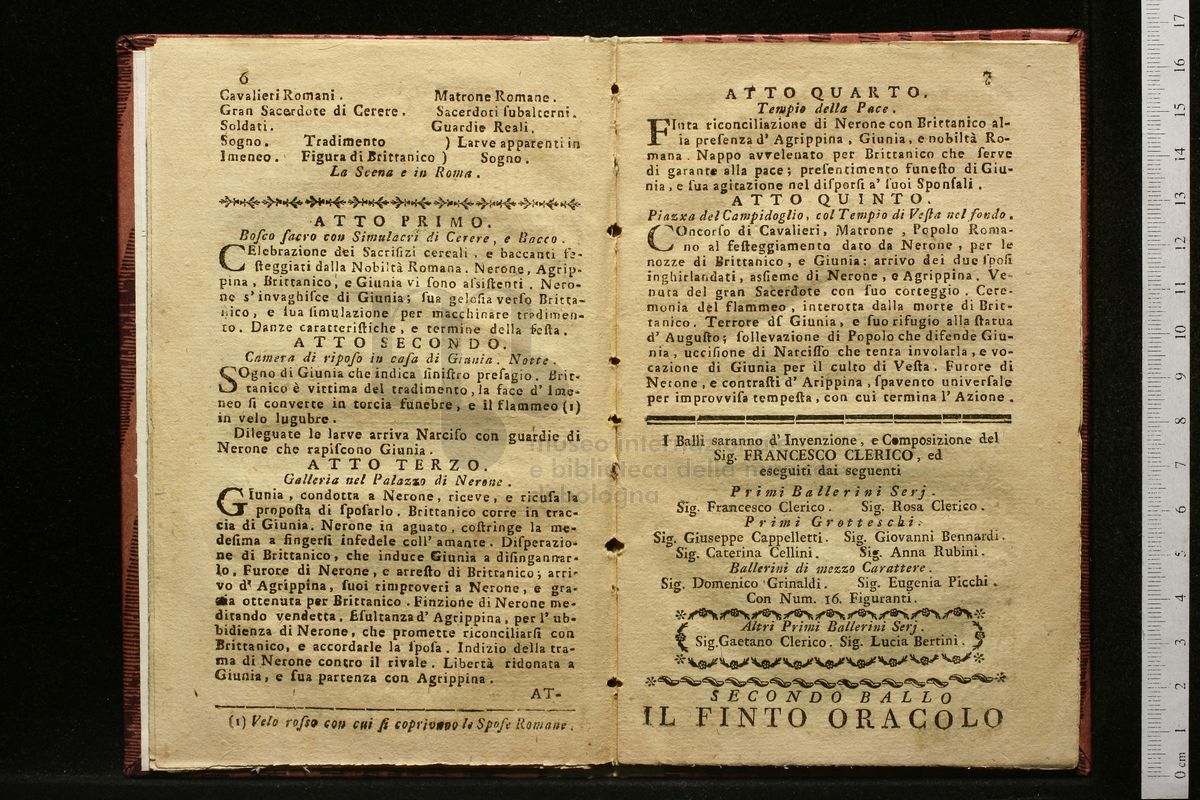 6
Cavalieri Romani. Matrone Romane.
Gran Sacerdote di Cerere. Sacerdoti subalterni.
Soldati. Guardie Reali.
Sogno. Tradimento ) Larve apparenti in
Imeneo. Figura di Brittanico ) Sogno.
La Scena e in Roma.
ATTO PRIMO.
Bosco sacro con Simulacri di Cerere, e Bacco.
CElebrazione dei Sacrifizi cereali, e baccanti fe-
steggiati dalla Nobiltà Romana. Nerone, Agrip-
pina, Brittanico, e Giunia vi sono assistenti. Nero-
ne s'invaghisce di Giunia; sua gelosia verso Britta-
nico, e sua simulazione per macchinare tradimen-
to. Danze caratteristiche, e termine della festa.
ATTO SECONDO.
Camera di riposo in casa di Giunia. Notte.
SOgno di Giunia che indica sinistro presagio. Brit-
tanico è vittima del tradimento, la face d'Ime-
neo si converte in torcia funebre, e il flammeo (1)
in velo lugubre.
Dileguate le larve arriva Narciso con guardie di
Nerone che rapiscono Giunia.
ATTO TERZO.
Galleria nel Palazzo di Nerone.
GIunia, condotta a Nerone, riceve, e ricusa la
proposta di sposarlo. Brittanico corre in trac-
cia di Giunia. Nerone in aguato, costringe la me-
desima a fingersi infedele coll'amante. Disperazio-
ne di Brittanico, che induce Giunia a disingannar-
lo, Furore di Nerone, e arresto di Brittanico; arri-
vo d'Agrippina, suoi rimproveri a Nerone, e gra-
zia ottenuta per Brittanico. Finzione di Nerone me-
ditando vendetta. Esultanza d'Agrippina, per l'ub-
bidienza di Nerone, che promette riconciliarsi con
Brittanico, e accordarle la sposa. Indizio della tra-
ma di Nerone contro il rivale. Libertà ridonata a
Giunia, e sua partenza con Agrippina.
AT-
(1) Velo rosso con cui si coprivano le Spose Romane.
7
ATTO QUARTO.
Tempio della Pace.
FInta riconciliazione di Nerone con Brittanico al-
la presenza d'Agrippina, Giunia, e nobiltà Ro-
mana. Nappo avvelenato per Brittanico che serve
di garante alla pace; presentimento funesto di Giu-
nia, e sua agitazione nel disporsi a' suoi Sponsali.
ATTO QUINTO.
Piazza del Campidoglio, col Tempio di Vesta nel fondo.
COncorso di Cavalieri, Matrone, Popolo Roma-
no al festeggiamento dato da Nerone, per le
nozze di Brittanico, e Giunia: arrivo dei due sposi
inghirlandati, assieme di Nerone, e Agrippina. Ve-
nuta del gran Sacerdote con suo corteggio. Cere-
monia del flammeo, interotta dalla morte di Brit-
tanico. Terrore di Giunia, e suo rifugio alla statua
d'Augusto; sollevazione di Popolo che difende Giu-
nia, uccisione di Narcisso che tenta involarla, e vo-
cazione di Giunia per il culto di Vesta. Furore di
Nerone, e contrasti d'Arippina, spavento universale
per improvvisa tempesta, con cui termina l'Azione.
I Balli saranno d'Invenzione, e Composizione del
Sig. FRANCESCO CLERICO, ed
eseguiti dai seguenti
Primi Ballerini Serj.
Sig. Francesco Clerico. Sig. Rosa Clerico.
Primi Grotteschi.
Sig. Giuseppe Cappelletti. Sig. Giovanni Bennardi.
Sig. Caterina Cellini. Sig. Anna Rubini.
Ballerini di mezzo Carattere.
Sig. Domenico Grinaldi. Sig. Eugenia Picchi.
Con Num. 16. Figuranti.
Altri Primi Ballerini Serj.
Sig. Gaetano Clerico. Sig. Lucia Bertini.
SECONDO BALLO
IL FINTO ORACOLO
museo internazionale
e biblioteca della musica
di bologna
0 cm 1 2 3 4 5 6 7 8 9 10 11 12 13 14 15 16 17